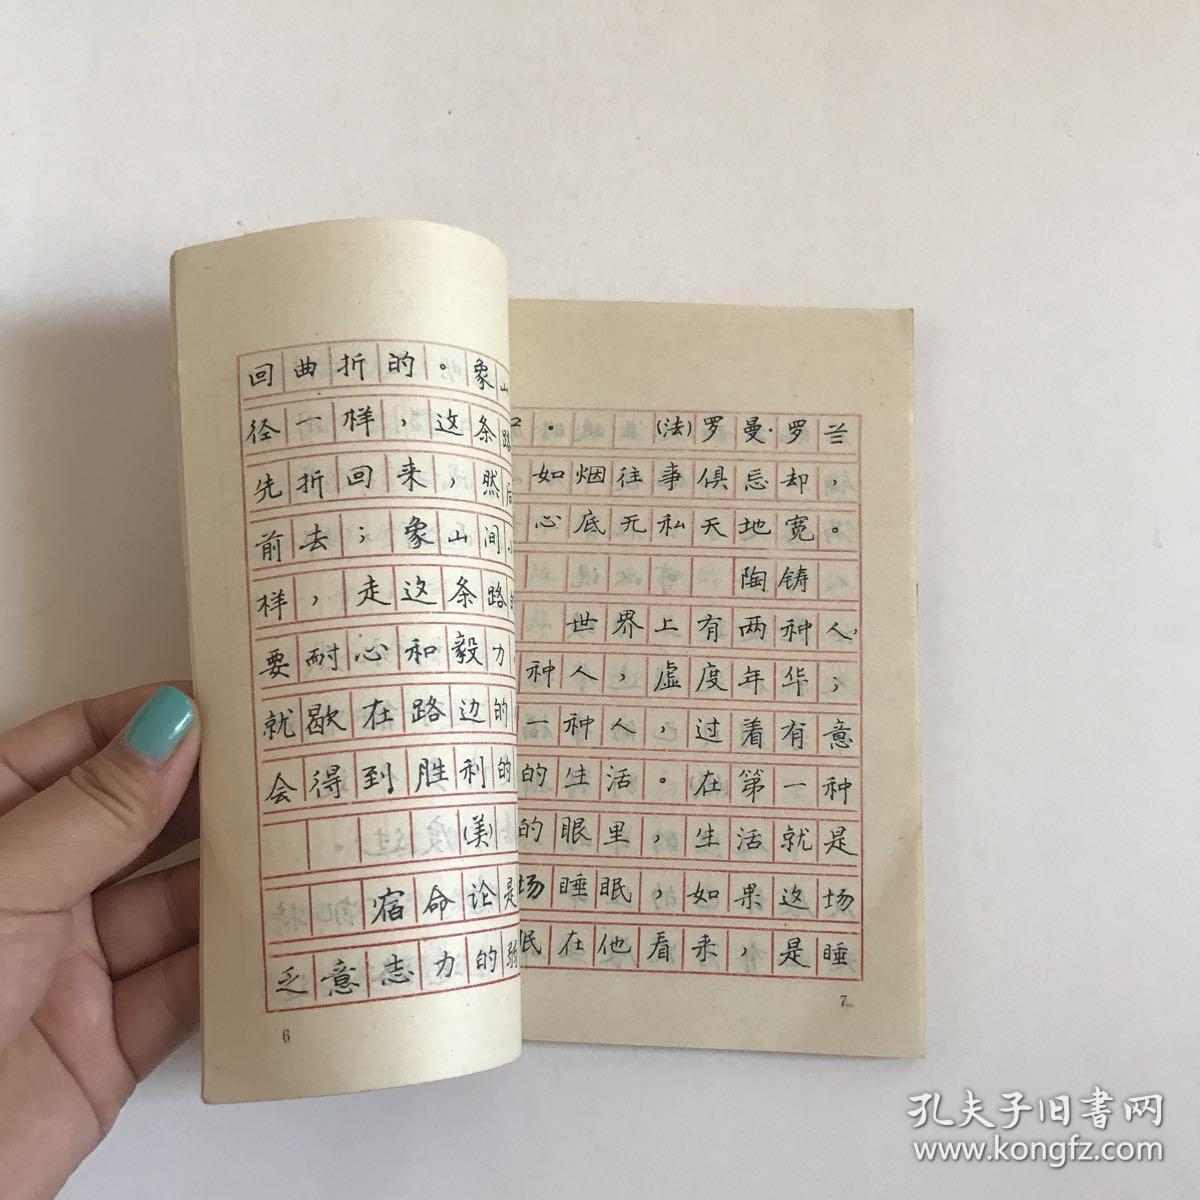 回曲折的。象山
径一样，这条路
先折回来，然后
前去；象山间
样，走这条路
要耐心和毅力
就歇在路边的
会得到胜利的
(美)
宿命论是
乏意志力的弱
6
。 (法)罗曼·罗兰
如烟往事俱忘却，
心底无私天地宽。
陶铸
世界上有两种人，
种人，虚度年华；
一种人，过着有意
的生活。在第一种
的眼里，生活就是
场睡眠，如果这场
眠在他看来，是睡
7
孔夫子旧书网
www.kongfz.com